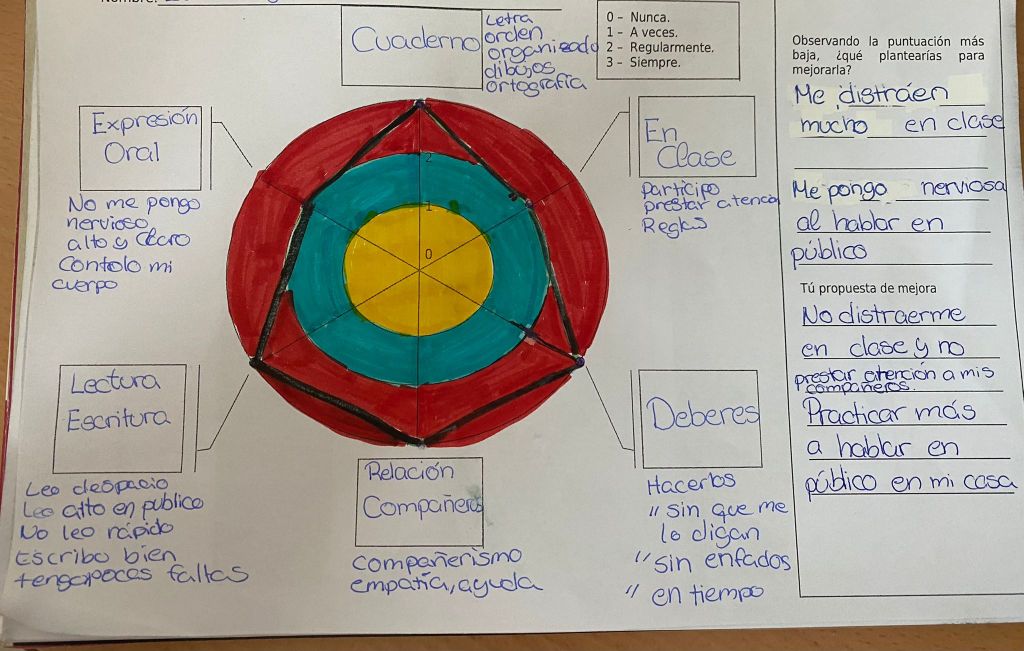 Cuaderno
Letra
orden
organizado
dibujos
ortografía
0 - Nunca.
1 - A veces.
2 - Regularmente.
3 - Siempre.
Expresión
Oral
No me pongo
nervioso
alto y claro
Contolo mi
cuerpo
2
1
0
En
Clase
participo
prestar atencion
Reglas
Lectura
Escritura
Leo despacio
Leo alto en publico
No leo rápido
Escribo bien
tengo pocas faltas
Relación
Compañeros
compañerismo
empatía, ayuda
Deberes
Hacerlos
" sin que me
lo digan
" sin enfados
" en tiempo
Observando la puntuación más
baja, ¿qué plantearías para
mejorarla?
Me distráen
mucho en clase
Me pongo nerviosa
al hablar en
público
Tú propuesta de mejora
No distraerme
en clase y no
prestar atención a mis
compañeros.
Practicar más
a hablar en
público en mi casa